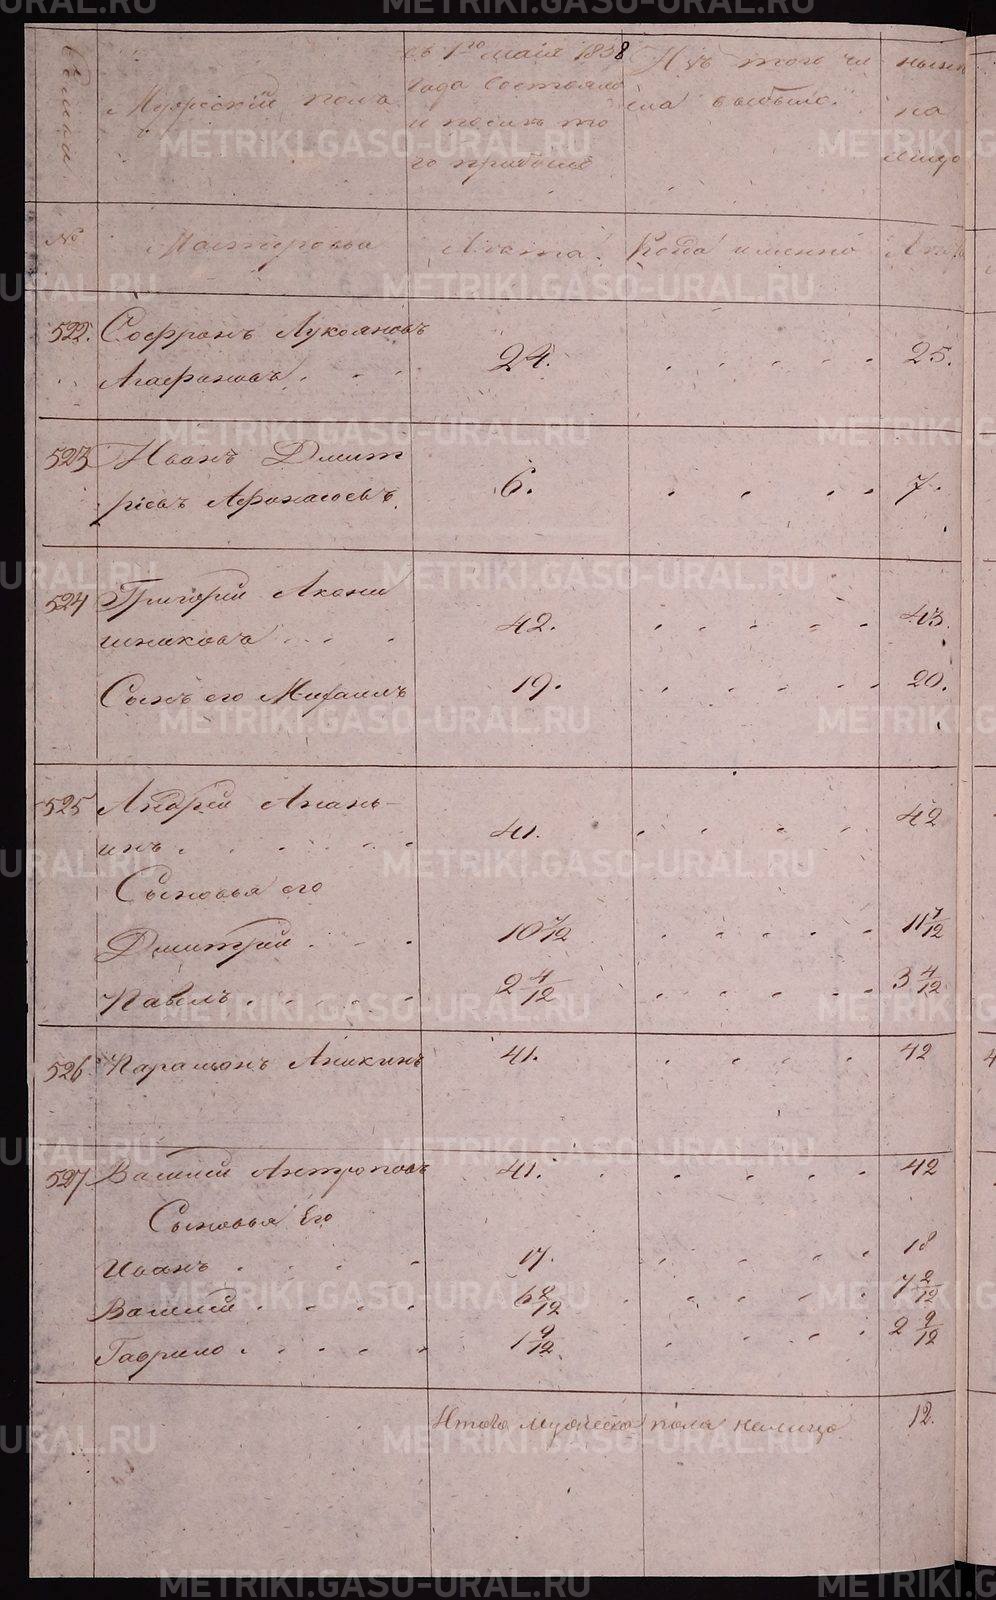 Семьи
Мужескій полъ
съ 1го маія 1838
года состояло
и послѣ то
го прибыло
Изъ того чи
сла выбыло.
нынѣ
на
лицо
№
Мастеровыя
Лѣта.
Когда именно
Лѣта
522. Софронъ Лукояновъ
Агафоновъ. 24. 25.
523 Иванъ Дмит
ріевъ Афонасьевъ. 6. 7.
524 Григорій
шнаковъ 42. 43.
Сынъ его Михаилъ 19. 20.
525 Андрей Анань-
инъ 41. 42
Сыновья его
Дмитрій 10 7/12 11 7/12
Павелъ 2 4/12 3 4/12
526 Парамонъ Аникинъ 41. 42
527 Василій Антроповъ 41. 42
Сыновья Его
Иванъ 17. 18
Василій 6 2/12 7 2/12
Гаврило 1 9/12 2 9/12
Итого мужеска пола налицо 12.
METRIKI.GASO-URAL.RU